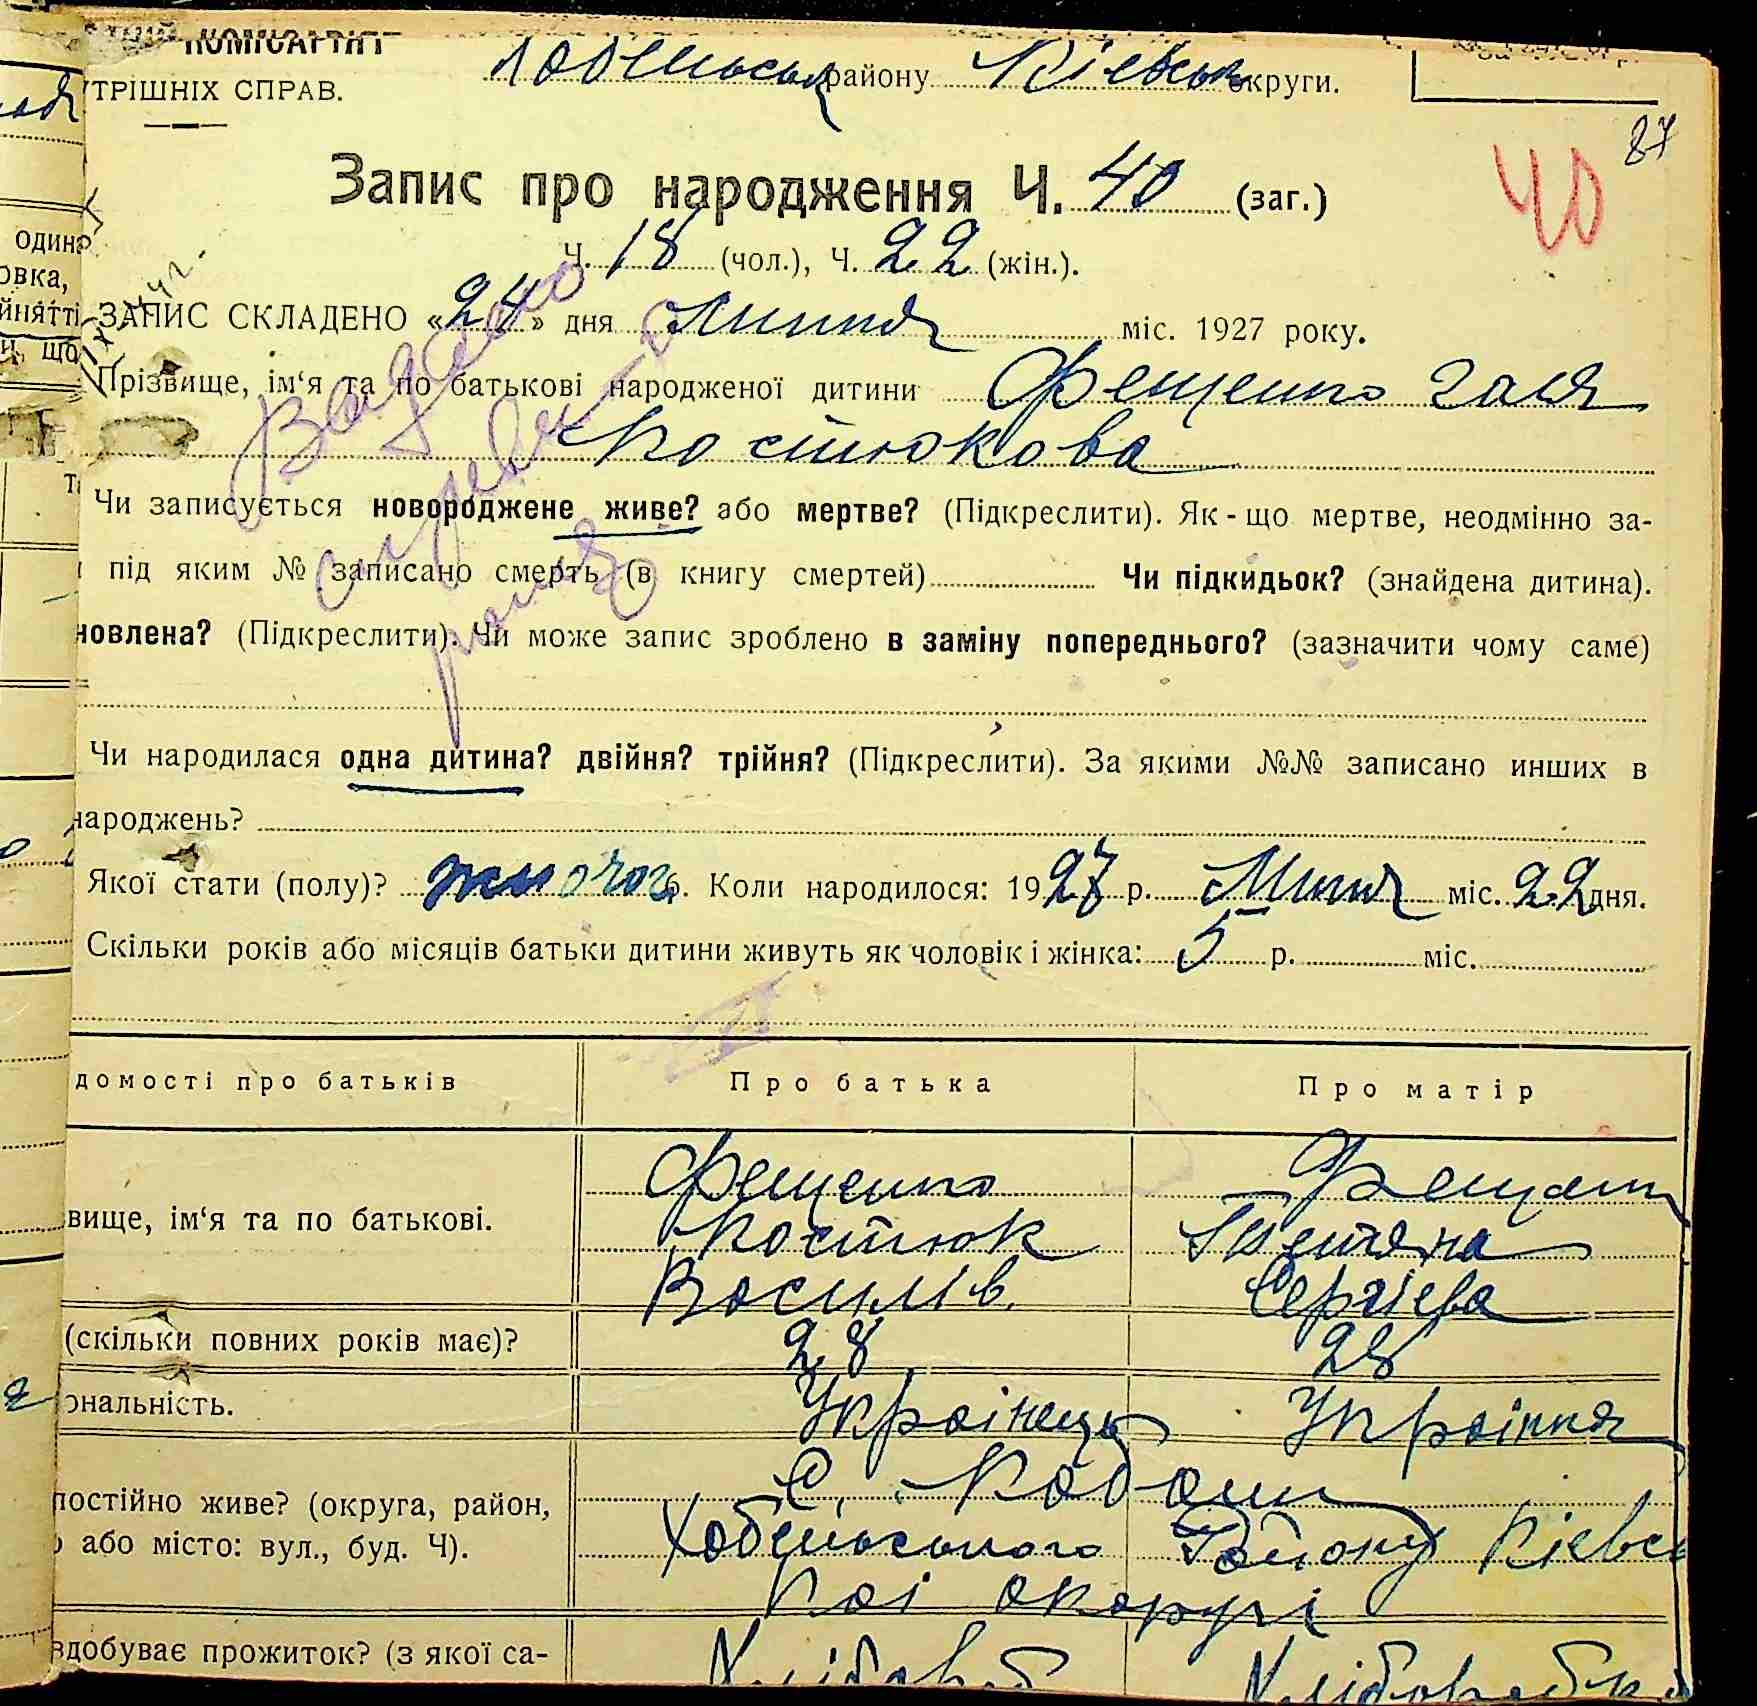 КОМІСАРІЯТ
ТРІШНІХ СПРАВ.
району Київськ округи.
87
40
Запис про народження Ч. 40 (заг.)
Ч. 18 (чол.), Ч. 22 (жін.).
ЗАПИС СКЛАДЕНО «24» дня липня міс. 1927 року.
Прізвище, ім‘я та по батькові народженої дитини Фещенко Галя
Костюкова
Видано
Чи записується новороджене живе? або мертве? (Підкреслити). Як-що мертве, неодмінно за-
під яким № записано смерть (в книгу смертей) Чи підкидьок? (знайдена дитина).
новлена? (Підкреслити). Чи може запис зроблено в заміну попереднього? (зазначити чому саме)
Чи народилася одна дитина? двійня? трійня? (Підкреслити). За якими №№ записано инших в
народжень?
Якої стати (полу)? жіночог. Коли народилося: 1927 р. Липня міс. 22 дня.
Скільки років або місяців батьки дитини живуть як чоловік і жінка: 5 р. міс.
домості про батьків Про батька Про матір
Фещенко Фещенк
вище, ім‘я та по батькові. Костюк Тетяна
Василів. Сергієва
(скільки повних років має)? 28 28
ональність. Украінець Украінка
С.
постійно живе? (округа, район, Хобенського Району Кіевсь
або місто: вул., буд. Ч). коі окоругі
здобуває прожиток? (з якої са- Хлібороб Хлібороб
одина
овка,
йнятті
и, що